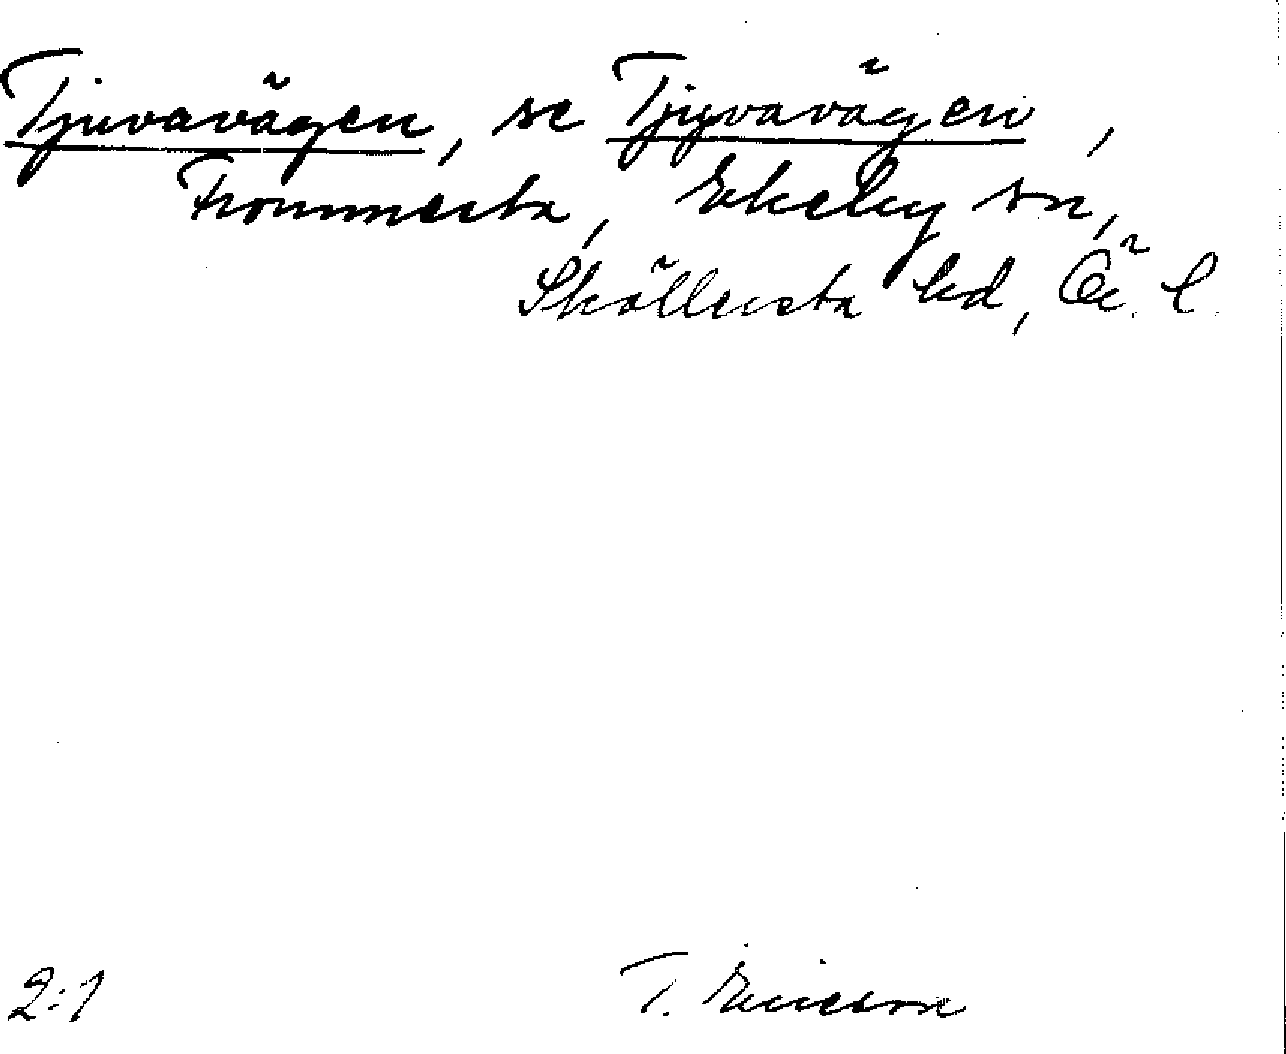 Tjuvavägen, se Tjyvavägen,
Frommesta, Ekeby sn,
Sköllersta hd, Ö. l.
2:1
T. Ericson